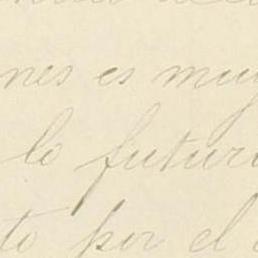 nes es muy
lo futuro
to por el